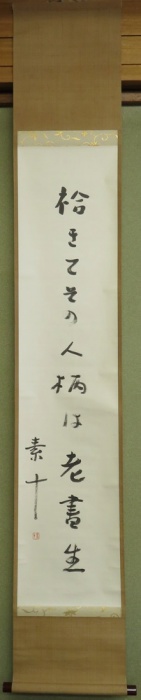 袷きてその人柄は老書生
素十